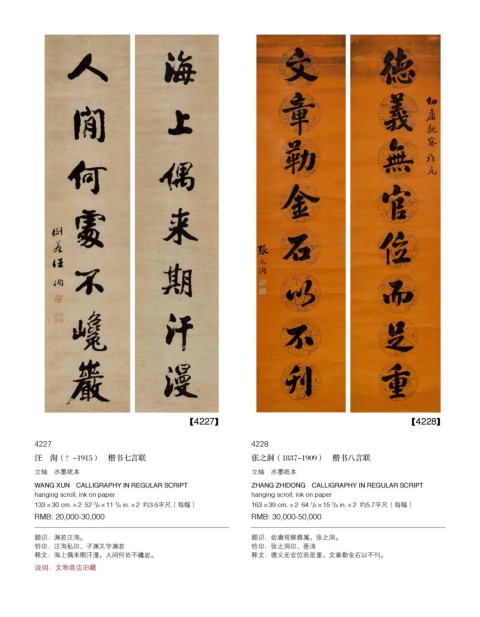 海上偶来期汗漫
人间何處不巉巖
澍若汪洵
德義無官位而足重
幼庸觀察雅屬
文章勒金石以不刊
張之洞
【4227】
【4228】
4227
汪　洵（？-1915）　楷书七言联
立轴　水墨纸本
WANG XUN　CALLIGRAPHY IN REGULAR SCRIPT
hanging scroll; ink on paper
133×30 cm. ×2　52 3/8×11 3/4 in. ×2　约3.6平尺（每幅）
RMB: 20,000-30,000
题识：渊若汪洵。
钤印：汪洵私印、子渊又字渊若
释文：海上偶来期汗漫，人间何处不巉岩。
说明：文物商店旧藏
4228
张之洞（1837-1909）　楷书八言联
立轴　水墨纸本
ZHANG ZHIDONG　CALLIGRAPHY IN REGULAR SCRIPT
hanging scroll; ink on paper
RMB: 30,000-50,000
题识：幼庸观察雅属，张之洞。
钤印：张之洞印、香涛
释文：德义无官位而足重，文章勒金石以不刊。